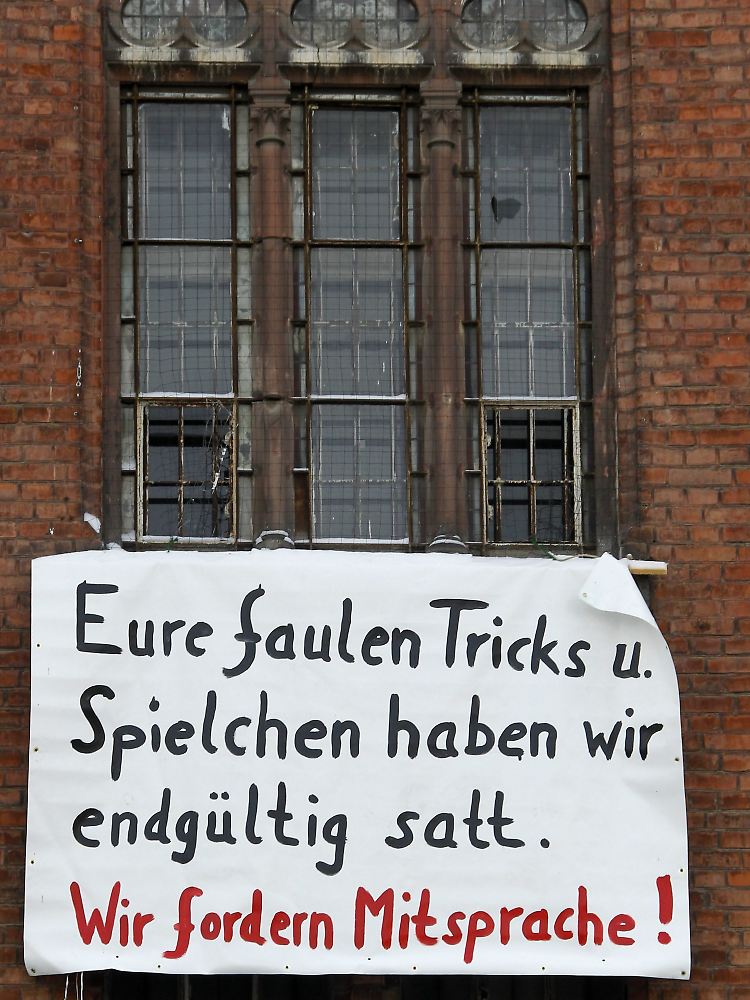 Eure faulen Tricks u.
Spielchen haben wir
endgültig satt.
Wir fordern Mitsprache!